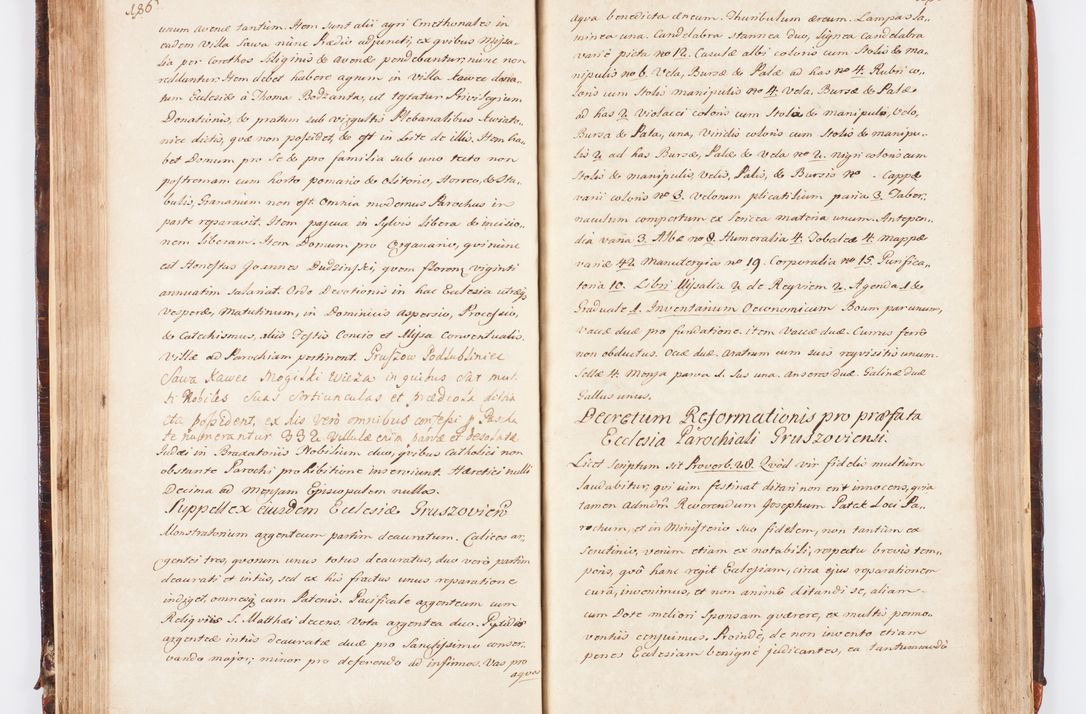 186
unum avenæ tantum. Item sunt alii agri Cmethonales in
eadem villa Sawa nunc Prædio adjuncti, ex quibus Missa-
lia per Corethos Siliginis & avenæ pendebantur, nunc non
redduntur. Item debet habere agrum in villa Xawec dona-
tum Ecclesiæ à Thoma Bodzanta, ut testatur Privilegium
Donationis, & pratum sub virgultis Plebanalibus
nice dictis, quæ non possidet, & est in Lite de illis. Item ha-
bet Domum pro se & pro familia sub uno tecto non
postremam cum horto pomario & olitorio, Horreo, & Sta-
bulis, Granarium non est. Omnia modernus Parochus in
parte reparavit. Item pascua in Sylvis libera & incisio-
nem liberam. Item Domum pro Organario, qui nunc
est Honestus Joannes Dudzinski, quem florenis viginti
annuatim salariat. Ordo Devotionis in hac Ecclesia utræq
Vesperæ, Matutinum, in Dominicis aspersio, Processio,
& Catechismus, aliis Festis Concio et Missa Conventualis.
Villæ ad Parochiam pertinent. Gruszow Poddubliniec
Sawa Xawec Mogiłki Wieża in quibus sat mul-
ti Nobiles suas Sortiunculas et prædiola
possident, ex his verò omnibus confessi p. Pascha
te numerantur 332 Villulæ enim parvæ et desolatæ
Judæi in Braxatoriis Nobilium duo, quibus Catholici non
obstante Parochi prohibitione inserviunt. Hæretici nulli
Decima ad Mensam Episcopalem nulla.
Suppellex eiusdem Ecclesiæ Gruszovien
Monstratorium argenteum partim deauratum. Calices ar-
gentei tres, quorum unus totus deauratus, duo verò partim
deaurati et intus, sed ex his fractus unus reparatione
indiget, omnesq cum Patenis. Pacificale argenteum cum
Religviis S. Matthæi decens. Vota argentea duo. Pyxides
argenteæ intus deauratæ duæ pro Sanctissimo conser-
vando major, minor pro deferendo ad infirmos. Vas pro
aqva
aqva benedicta æneum. Thuribulum æreum. Lampas la-
minea una. Candelabra stannea duo, lignea candelabra
variè picta no 12. Casulæ albi coloris cum Stolis & ma-
nipulis no 6. Vela, Bursæ & Palæ ad has no 4. Rubri co-
loris cum Stolis manipulis no 4. Vela, Bursæ & Palæ
ad has 2 Violacei coloris cum Stola & manipulo, Velo,
Bursa & Pala, una, Viridis coloris cum Stolis & manipu-
lis 2 ad has Bursæ, Palæ & Vela no 2. nigri coloris cum
Stolis & manipulis, Velis, Palis, & Bursis no . Cappæ
varii coloris no 3. Velorum plicatilium paria 3. Taber-
naculum compertum ex sericea materia unum. Antepen-
dia varia 3. Albæ no 8. Humeralia 4. Tobaleæ 4. Mappæ
variæ 42 Manutergia no 19. Corporalia no 15. Purifica-
toria 10. Libri Missalia 2 de Reqviem 2. Agenda 1 &
Graduale 1. Inventarium Oeconomicum Boum par unum,
Vaccæ duæ pro fundatione. item Vaccæ duæ. Currus ferro
non obductus. Oves duæ. Aratrum cum suis reqvisitis unum.
Sellæ 4. Mensa parva 1. Sus una. Anseres duæ. Galinæ duæ
Gallus unus.
Decretum Reformationis pro præfata
Ecclesia Parochiali Gruszoviensi.
Licet scriptum sit Proverb. 28. Qvòd vir fidelis multùm
laudabitur, qui vim festinat ditari non erit innocens, qvia
tamen Admdm Reverendum Josephum Patek Loci Pa-
rochum, et in Ministerio suo fidelem, non tantùm ex
scrutinio, verùm etiam ex notabili, respectu brevis tem-
poris, qvo hanc regit Ecclesiam, circa ejus reparationem
curâ, invenimus, et non animô ditandi se, aliam
cum Dote meliori Sponsam quærere, ex multis permo-
ventiis conjicimus. Proindè, de non invento etiam
penes Ecclesiam benignè judicantes, ea tantummodò